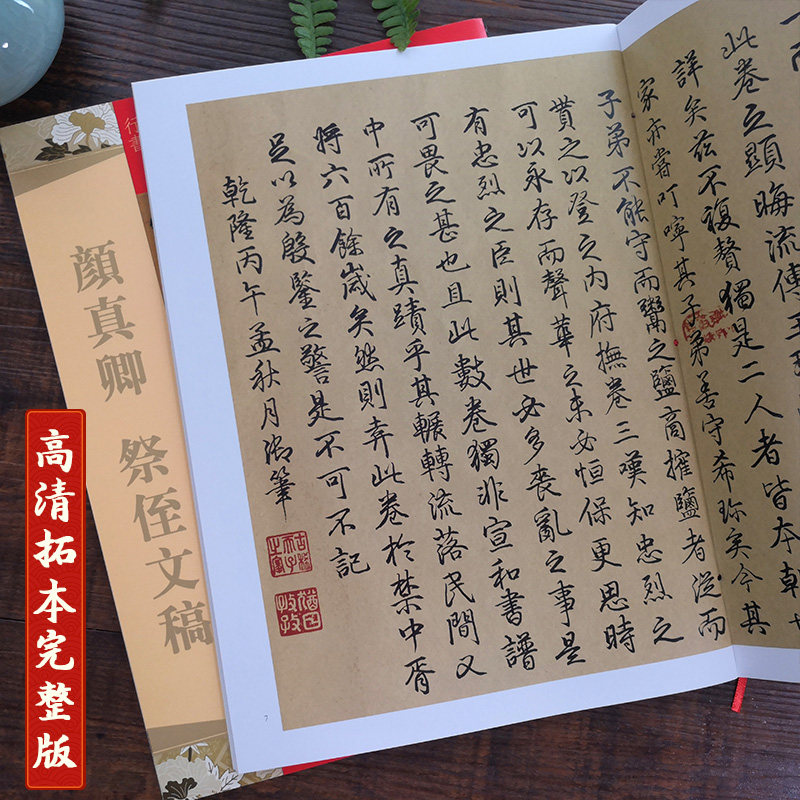 此卷之顯晦流傳王
詳矣茲不複贅獨是二人者皆本朝
家亦嘗叮嚀其子弟善守希珍矣今其
子弟不能守而鬻之鹽商摧鹽者從而
貰之以登之內府撫卷三嘆知忠烈之
可以永存而聲華之未必恒保更思時
有忠烈之臣則其世必多喪亂之事是
可畏之甚也且此數卷獨非宣和書譜
中所有之真蹟乎其輾轉流落民間又
將六百餘歲矣然則弆此卷於禁中胥
足以為殷鑒之警是不可不記
乾隆丙午孟秋月御筆
古稀天子之寶
猶日孜孜
7
行書
顔真卿 祭侄文稿
高清拓本完整版